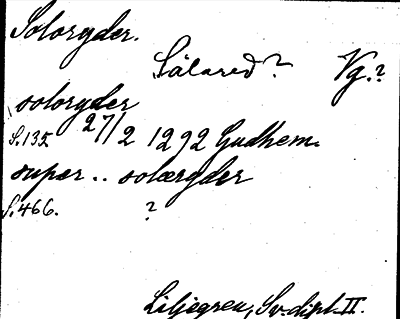 Soloryder.
Sälared? Vg.?
soloryder
S.135 27/2 1292 Gudhem.
super .. soloryder
S.466. ?
Liljegren, Sv. dipl. II.